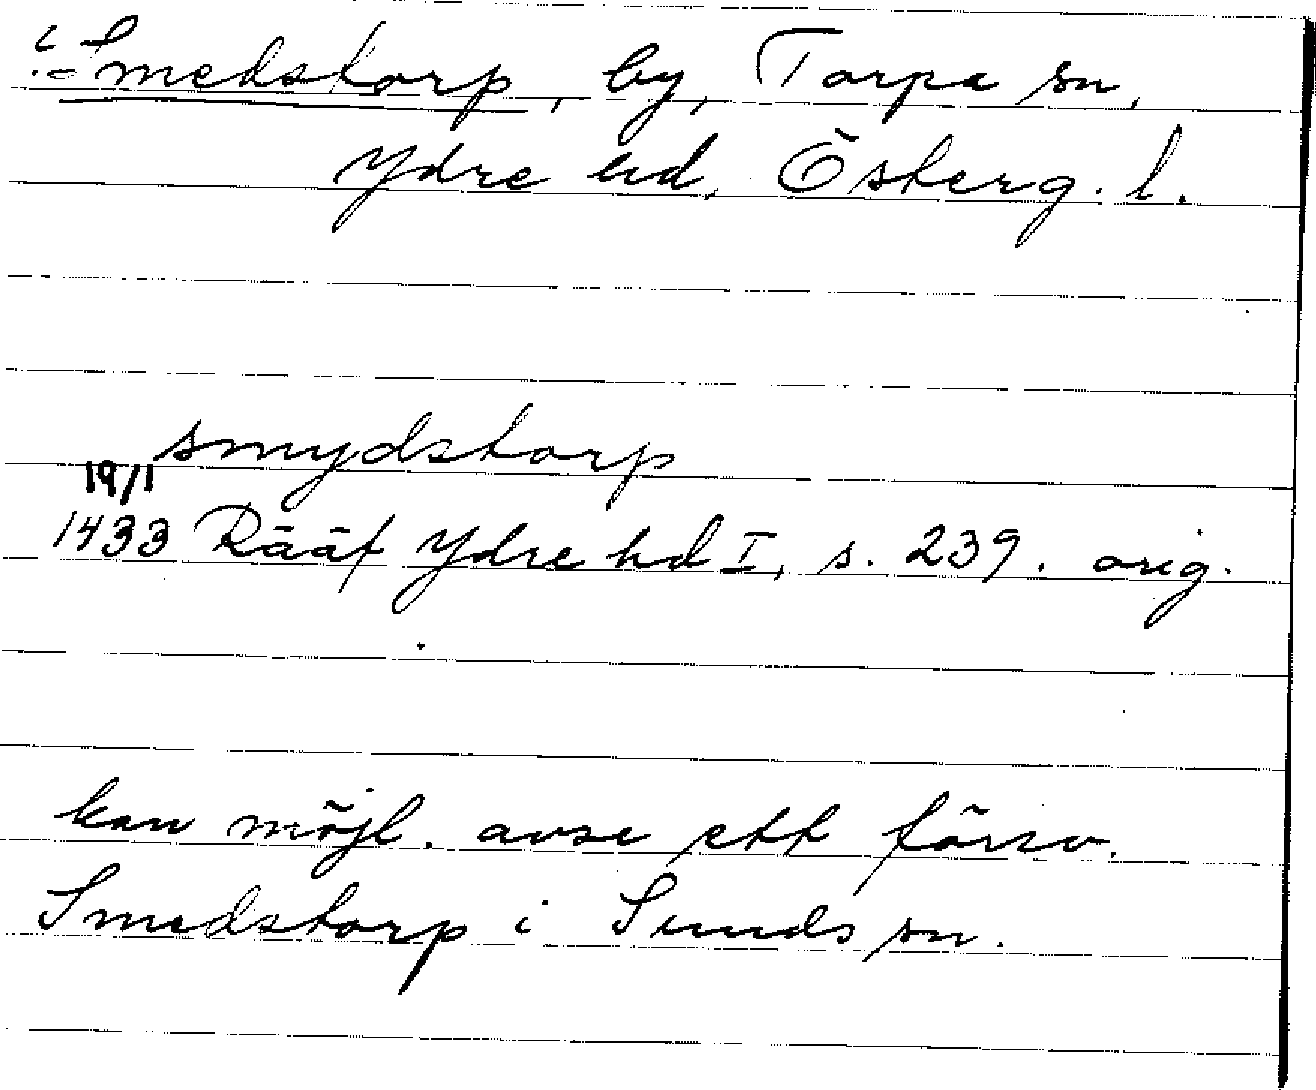 Smedstorp, by, Torpa sn,
Ydre hd, Österg. l.
smydstorp
19/1
1433 Rääf Ydre hd I, s. 239. orig.
kan möjl. avse ett försv.
Smedstorp i Sunds sn.